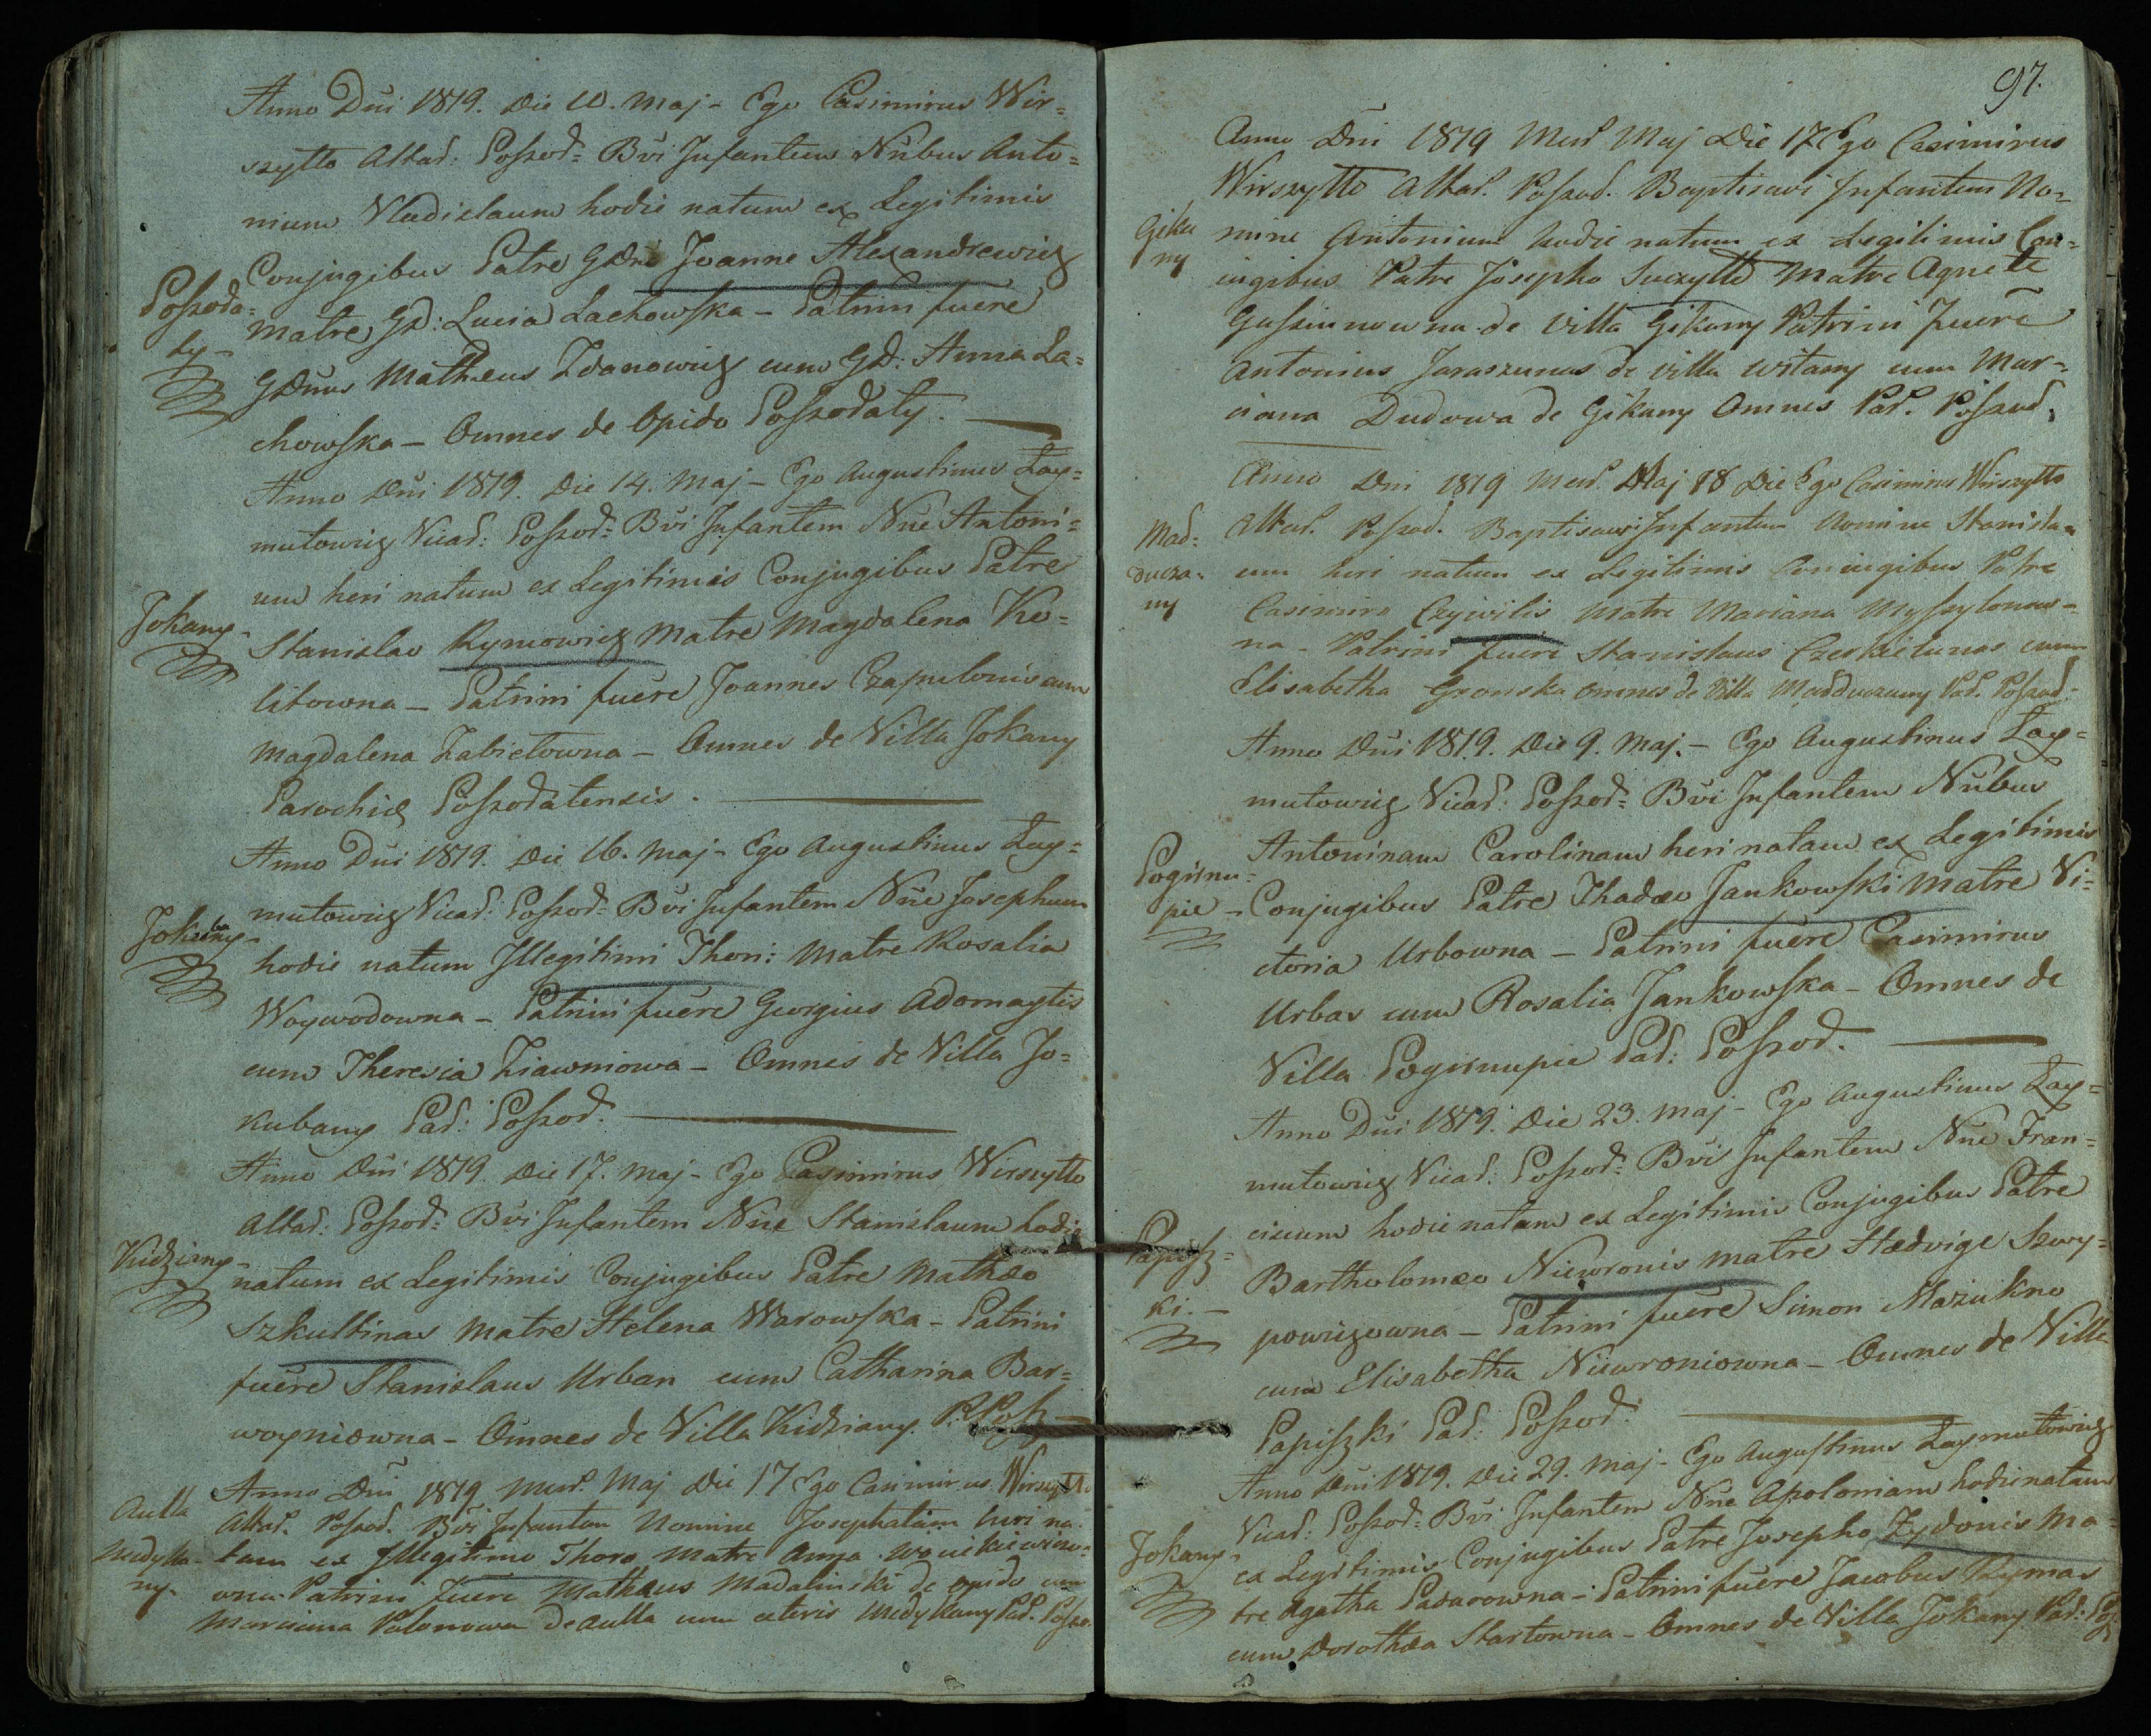 Anno Dñi 1819. Die 10. Maj - Ego Casimirus Wir=
szytto Altad: Poszod= Bvi Infantem Nñbus Anto=
nium Vladislaum hodie natum ex Legitimis
Conjugibus Patre GDno Joanne Alexandrewicz
Poszoda=
ty-
Matre GD: Lucia Lachowska - Patrini fuere
GDnus Mathæus Zdanowicz cum GD: Anna La=
chowska - Omnes de Opido Poszodaty.
Anno Dñi 1819. Die 14. Maj - Ego Augustinus Zay=
mutowicz Vicad: Poszod= Bvi Infantem Nñe Antoni=
um heri natum ex Legitimis Conjugibus Patre
Jokany-
Stanislao Rymowicz Matre Magdalena Ko=
litowna - Patrini fuere Joannes Czapulonis cum
Magdalena Zabietowna - Omnes de Villa Jokany
Parochiæ Poszodatensis.
Anno Dñi 1819. Die 16. Maj - Ego Augustinus Zay=
mutowicz Vicad: Poszod= Bvi Infantem Nñe Josephum
Jokubany-
hodie natum Illegitimi Thori: Matre Rosalia
Woywodowna - Patrini fuere Georgius Adomaytis
cum Theresia Ziawniowa - Omnes de Villa Jo=
kubany Pad: Poszod.
Anno Dñi 1819. Die 17. Maj - Ego Casimirus Wirszytto
Altad: Poszod= Bvi Infantem Nñe Stanislaum hodie
Kidziany-
natum ex Legitimis Conjugibus Patre Mathæo
Szkultinas Matre Helena Warowska - Patrini
fuere Stanislaus Urban cum Catharina Bar=
woyniowna - Omnes de Villa Kidziany. P. Posz
Anno Dñi 1819 Mens. Maj Die 17 Ego Casimirus Wirszytto
Aulla
Medyka-
ny-
Altad. Poszod. Bvi Infantem Nomine Josephatam heri na
tam ex Illegitimo Thoro Matre Anna
owna Patrini fuere Mathæus Madalinski de opido cum
Marciana Polonowa de aulla cum ceteris Medykany Pad. Poszo.
97.
Anno Dni 1819 Mens Maj Die 17 Ego Casimirus
Wirszytto Altad. Poszod. Baptisavi Infantem No=
Gika
ny
mine Antonium hodie natum ex Legitimis Con=
iugibus Patre Josepho Suszytto Matre Agnete
Gussiunowna de Villa Gikany Patrini fuere
Antonius Jaraszunas de villa Witany cum Mar=
ciana Dudowa de Gikany Omnes Pad. Poszod.
Anno Dni 1819 Mens. Maj 18 Die Ego Casimirus Wirszytto
Altad. Poszod. Baptisavi Infantem Nomine Stanisla=
Mad=
ducza=
ny
um heri natum ex Legitimis Coniugibus Patre
Casimiro Czywilis Matre Mariana Myszytonow=
na - Patrini fuere Stanislaus Czerkietunas cum
Elisabetha Gronska omnes de Villa Madduczany Pad. Poszod.
Anno Dñi 1819. Die 9. Maj.- Ego Augustinus Zay=
mutowicz Vicad: Poszod= Bvi Infantem Nñbus
Antoninam Carolinam heri natam ex Legitimis
Pogirnu=
pie -
Conjugibus Patre Thadæo Jankowski Matre Vi=
ctoria Urbowna - Patrini fuere Casimirus
Urbas cum Rosalia Jankowska - Omnes de
Villa Pogirnupie Pad: Poszod.
Anno Dñi 1819. Die 23. Maj - Ego Augustinus Zay=
mutowicz Vicad: Poszod= Bvi Infantem Nñe Fran=
ciscum hodie natum ex Legitimis Conjugibus Patre
Papisz=
ki.-
Bartholomæo Niewronis Matre Hedvige Szwy=
powiczowna - Patrini fuere Simon Mażukno
cum Elisabetha Niewroniowna - Omnes de Villa
Papiszki Pad: Poszod:
Anno Dñi 1819. Die 29. Maj - Ego Augustinus Zaymutowicz
Vicad: Poszod= Bvi Infantem Nñe Apoloniam hodie natam
Jokany-
ex Legitimis Conjugibus Patre Josepho Zydonis Ma=
tre Agatha Padarowna - Patrini fuere Jacobus Rymas
cum Dorothæa Startowna - Omnes de Villa Jokany Pad: Posz